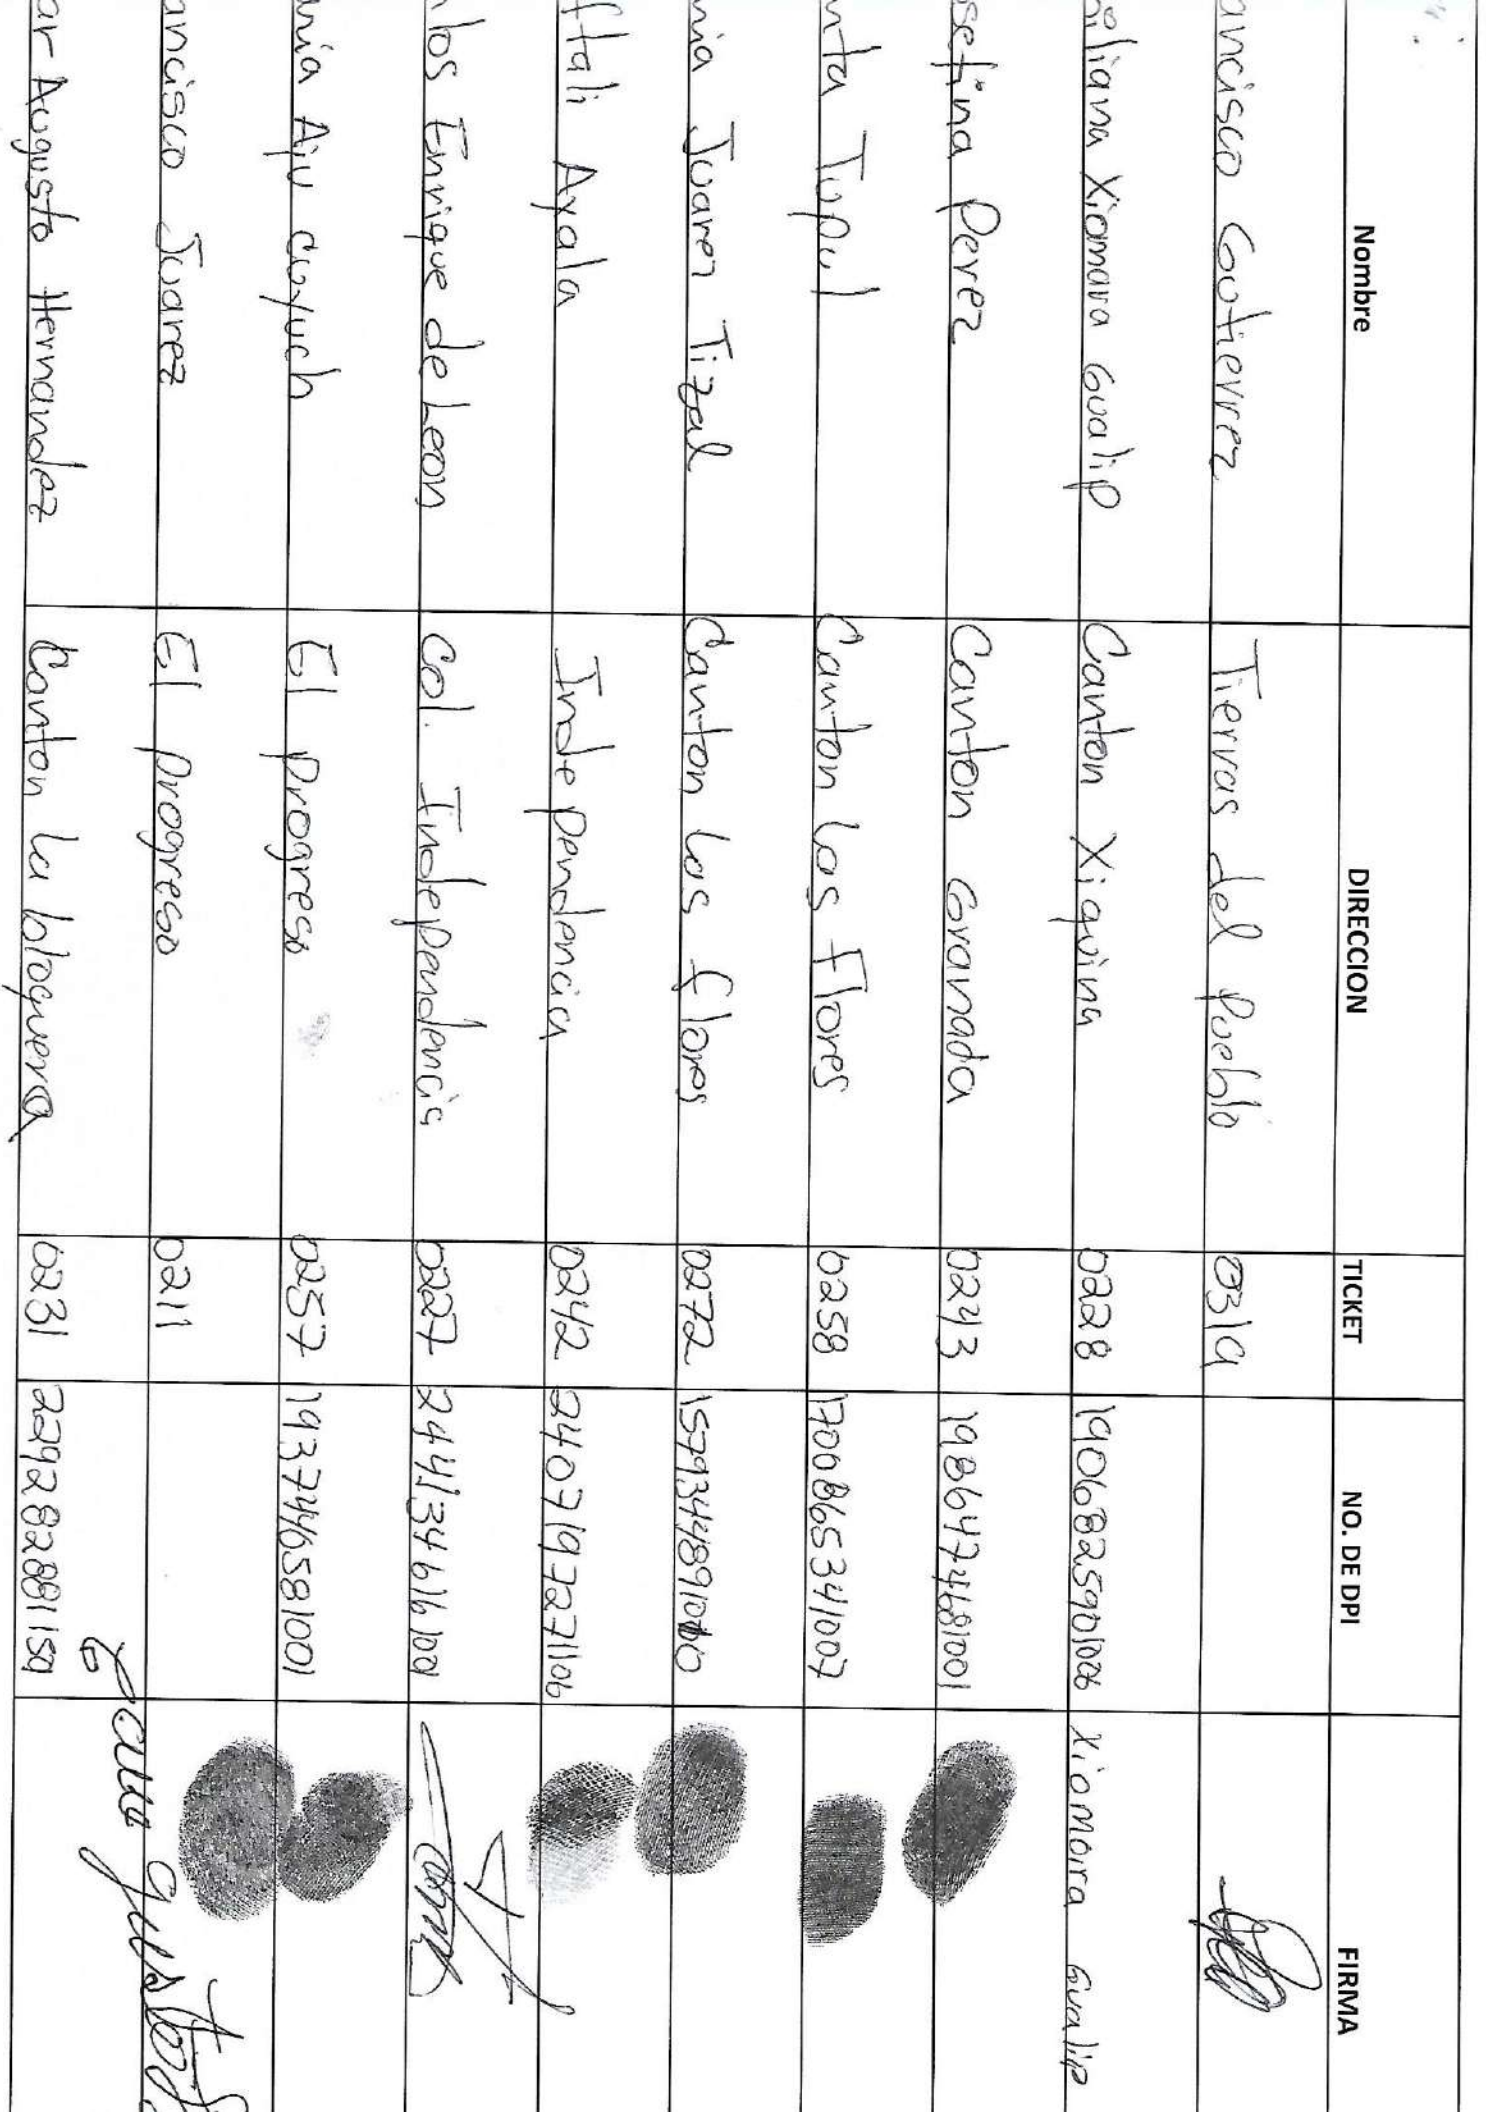 Nombre DIRECCION TICKET NO. DE DPI FIRMA
ancisco Gutierrez Tierras del Pueblo 0319
iliana Xiomara Gualip Canton Xiquina 0228 1906825901006 Xiomara Gualip
sefina Perez Canton Granada 0243 1986474681001
nta Tupul Canton Las Flores 0258 1700865341007
nia Juarez Tizal Canton las flores 0272 1579344891010
ftali Ayala Independencia 0242 2407197271106
los Enrique de Leon Col. Independencia 0227 2441346161001
ania Aju Cuyuch El Progreso 0257 1937446581001
ancisco Juarez El Progreso 0211
ar Augusto Hernandez Canton la bloquera 0231 2292828811509